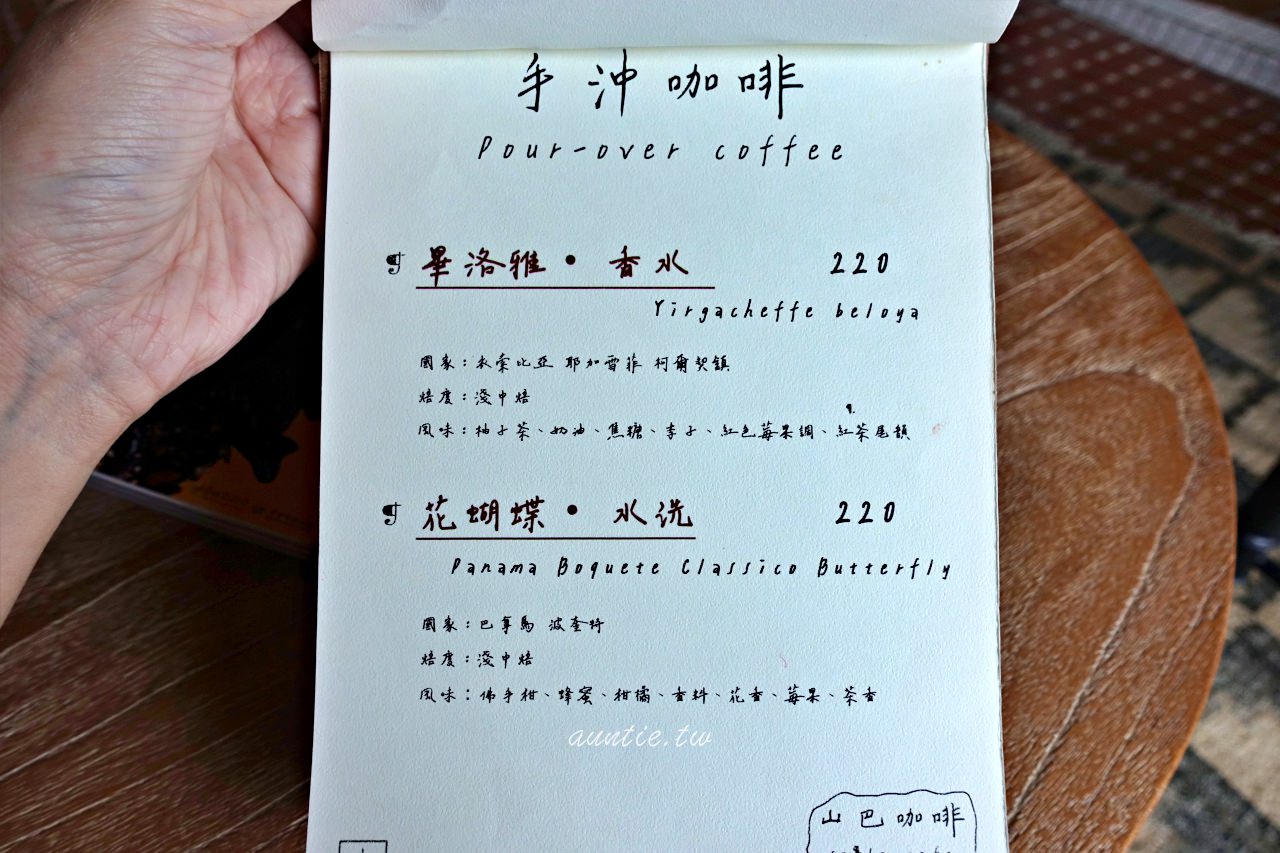 手沖咖啡
Pour-over coffee
¶ 畢洛雅•香水 220
Yirgacheffe beloya
國家：衣索比亞 耶加雪菲 柯爾契鎮
焙度：淺中焙
風味：柚子茶、奶油、焦糖、李子、紅色莓果調、紅茶尾韻
¶ 花蝴蝶•水洗 220
Panama Boquete Classico Butterfly
國家：巴拿馬 波奎特
焙度：淺中焙
風味：佛手柑、蜂蜜、柑橘、香料、花香、莓果、茶香
auntie.tw
山巴咖啡